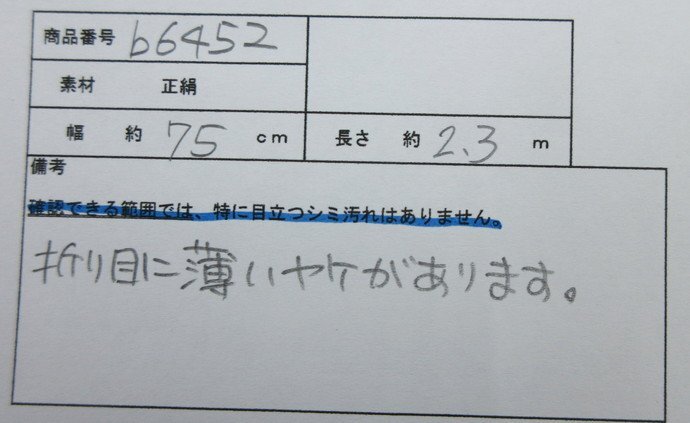 商品番号 b6452
素材 正絹
幅 約 75 cm 長さ 約 2.3 m
備考
確認できる範囲では、特に目立つシミ汚れはありません。
折り目に薄いヤケがあります。